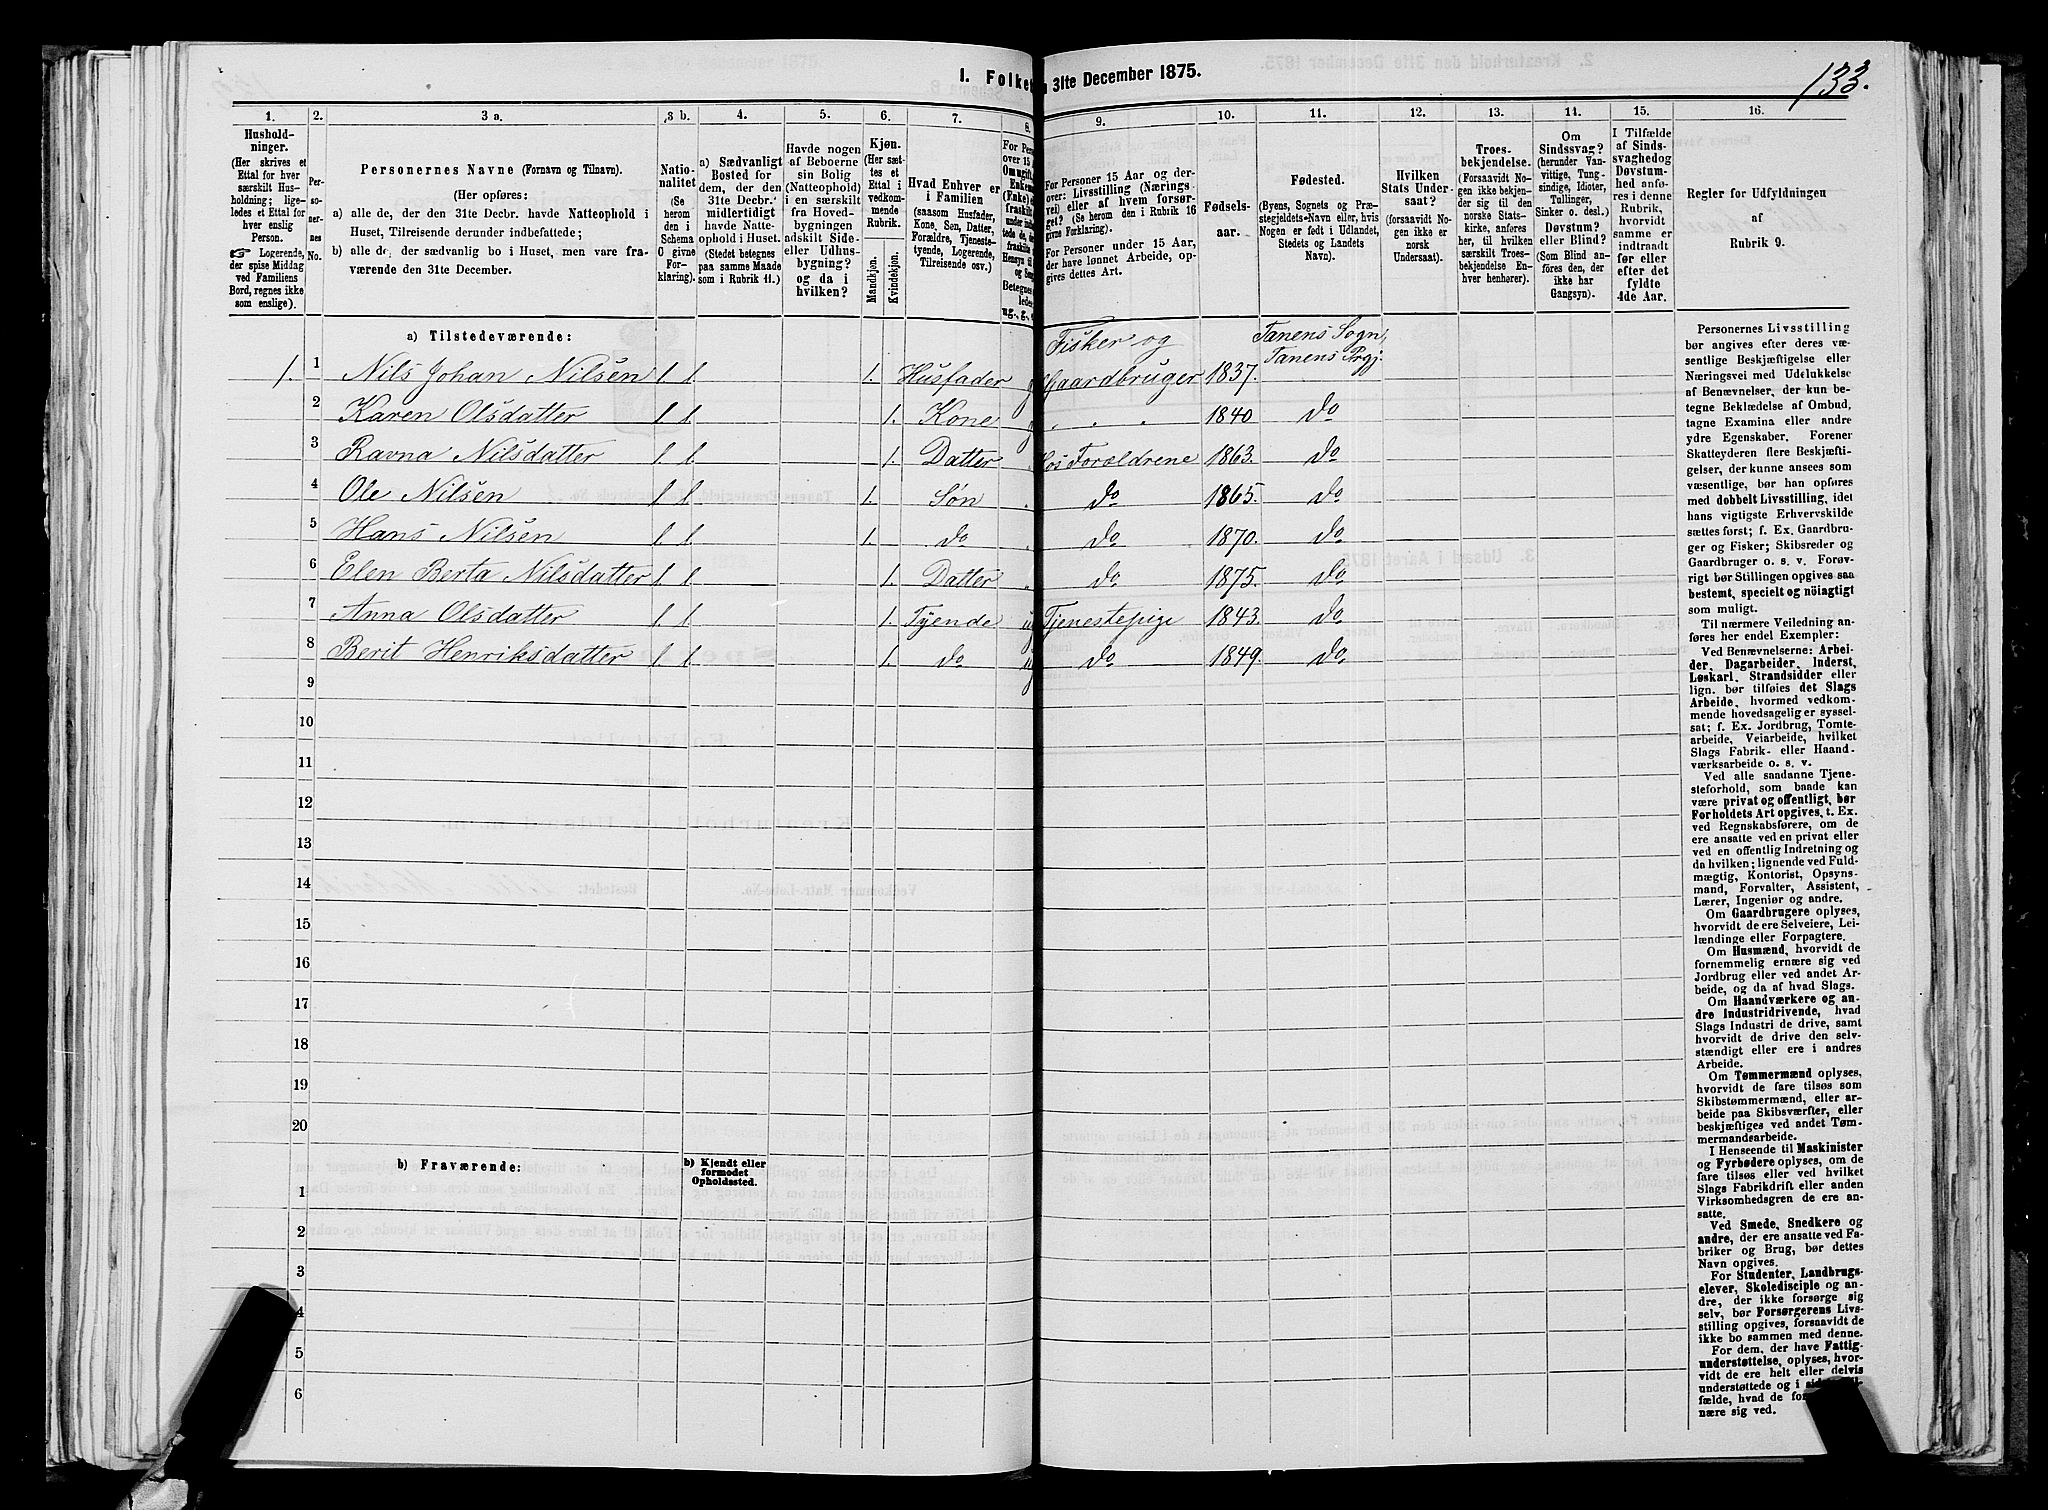 133.
I. Folket
n 31te December 1875.
1.
2.
3 a.
3 b.
4.
5.
6.
7.
8.
9.
10.
11.
12.
13.
14.
15.
16.
Hushold-
ninger.
(Her skrives et
Ettal for hver
særskilt Hus-
holdning; lige-
ledes et Ettal for
hver enslig
Person.
☞ Logerende,
der spise Middag
ved Familiens
Bord, regnes ikke
som enslige).
Per-
so-
ner-
nes
No.
Personernes Navne (Fornavn og Tilnavn).
(Her opføres:
a) alle de, der den 31te Decbr. havde Natteophold i
Huset, Tilreisende derunder indbefattede;
b) alle de, der sædvanlig bo i Huset, men vare fra-
værende den 31te December.
Natio-
nalitet
(Se
herom
den i
Schema
O givne
For-
klaring).
a) Sædvanligt
Bosted for
dem, der den
31te Decbr.
midlertidigt
havde Natte-
ophold i Huset.
(Stedet betegnes
paa samme Maade
som i Rubrik 11.)
Havde nogen
af Beboerne
sin Bolig
(Natteophold)
i en særskilt
fra Hoved-
bygningen
adskilt Side-
eller Udhus-
bygning?
og da i
hvilken?
Kjøn.
(Her sæt-
tes et
Ettal i
vedkom-
mende
Rubrik.
Mandkjøn.
Kvindekjøn.
Hvad Enhver er
i Familien
(saasom Husfader,
Kone, Søn, Datter,
Forældre, Tjeneste-
tyende, Logerende,
Tilreisende osv.)
For Personer 15 Aar og der-
over: Livsstilling (Nærings-
vei) eller af hvem forsør-
get? (Se herom den i Rubrik 16
givne Forklaring).
For Personer under 15 Aar,
der have lønnet Arbeide, op-
gives dettes Art.
Fødsels-
aar.
Fødested.
(Byens, Sognets og Præ-
stegjeldets Navn eller, hvis
Nogen er født i Udlandet,
Stedets og Landets
Navn).
Hvilken
Stats Under-
saat?
(forsaavidt No-
gen ikke er
norsk
Undersaat).
Troes-
bekjendelse.
(Forsaavidt No-
gen ikke bekjen-
der sig til den
norske Stats-
kirke, anføres
her, til hvilken
særskilt Troes-
bekjendelse En-
hver henhører).
Om
Sindssvag?
(herunder Van-
vittige, Tung-
sindige, Idioter,
Tullinger,
Sinker o. desl.)
Døvstum?
eller Blind?
(Som Blind an-
føres den, der
ikke har
Gangsyn).
I Tilfælde
af Sinds-
svaghed og
Døvstum-
hed anfø-
res i denne
Rubrik,
hvorvidt
samme er
indtraadt
før eller
efter det
fyldte
4de Aar.
Regler for Udfyldningen
af
Rubrik 9.
a) Tilstedeværende:
Fisker og
Tanens Sogn,
Tanens Prgj.
1. 1 Nils Johan Nilsen 1. 1. 1. Husfader g Gaardbruger 1837.
2 Karen Olsdatter 1. 1. 1. Kone g 1840 do
3 Ravna Nilsdatter 1. 1. 1. Datter Hos Forældrene 1863. do
4 Ole Nilsen 1. 1. 1. Søn do 1865. do
5 Hans Nilsen 1. 1. 1. do do 1870. do
6 Elen Berta Nilsdatter 1. 1. 1. Datter do 1875. do
7 Anna Olsdatter 1. 1. 1. Tyende ug Tjenestepige 1843. do
8 Berit Henriksdatter 1. 1. 1. do ug do 1849. do
9
10
11
12
13
14
15
16
17
18
19
20
b) Fraværende:
b) Kjendt eller
formodet
Opholdssted.
1
2
3
4
5
6
Personernes Livsstilling
bør angives efter deres væ-
sentlige Beskjæftigelse eller
Næringsvei med Udelukkelse
af Benævnelser, der kun be-
tegne Beklædelse af Ombud,
tagne Examina eller andre
ydre Egenskaber. Forener
Skatteyderen flere Beskjæfti-
gelser, der kunne ansees som
væsentlige, bør han opføres
med dobbelt Livsstilling, idet
hans vigtigste Erhvervskilde
sættes først; f. Ex. Gaardbru-
ger og Fisker; Skibsreder og
Gaardbruger o. s. v. Forøv-
rigt bør Stillingen opgives saa
bestemt, specielt og nöiagtigt
som muligt.
Til nærmere Veiledning an-
føres her endel Exempler:
Ved Benævnelserne: Arbei-
der, Dagarbeider, Inderst,
Løskarl, Strandsidder eller
lign. bør tilføies det Slags
Arbeide, hvormed vedkom-
mende hovedsagelig er syssel-
sat; f. Ex. Jordbrug, Tomte-
arbeide, Veiarbeide, hvilket
Slags Fabrik- eller Haand-
værksarbeide o. s. v.
Ved alle saadanne Tjene-
steforhold, som baade kan
være privat og offentligt, bør
Forholdets Art opgives, t. Ex.
ved Regnskabsførere, om de
ere ansatte ved en privat eller
ved en offentlig Indretning og
da hvilken; lignende ved Fuld-
mægtig, Kontorist, Opsyns-
mand, Forvalter, Assistent,
Lærer, Ingeniør og andre.
Om Gaardbrugere oplyses,
hvorvidt de ere Selveiere, Lei-
lændinge eller Forpagtere.
Om Husmænd, hvorvidt de
fornemmelig ernære sig ved
Jordbrug eller ved andet Ar-
beide, og da af hvad Slags.
Om Haandværkere og an-
dre Industridrivende, hvad
Slags Industri de drive, samt
hvorvidt de drive den selv-
stændigt eller ere i andres
Arbeide.
Om Tømmermænd oplyses,
hvorvidt de fare tilsøs som
Skibstømmermænd, eller ar-
beide paa Skibsværfter, eller
beskjæftiges ved andet Tøm-
mermandsarbeide.
I Henseende til Maskinister
og Fyrbødere oplyses, om de
fare tilsøs eller ved hvilket
Slags Fabrikdrift eller anden
Virksomhedsgren de ere an-
satte.
Ved Smede, Snedkere og
andre, der ere ansatte ved Fa-
briker og Brug, bør dettes
Navn opgives.
For Studenter, Landbrugs-
elever, Skoledisciple og an-
dre, der ikke forsørge sig
selv, bør Forsørgerens Livs-
stilling opgives, forsaavidt de
ikke bo sammen med denne.
For dem, der have Fattig-
understøttelse, oplyses, hvor-
vidt de ere helt eller delvis
understøttede og i
fælde, hvad de
nære sig ved.